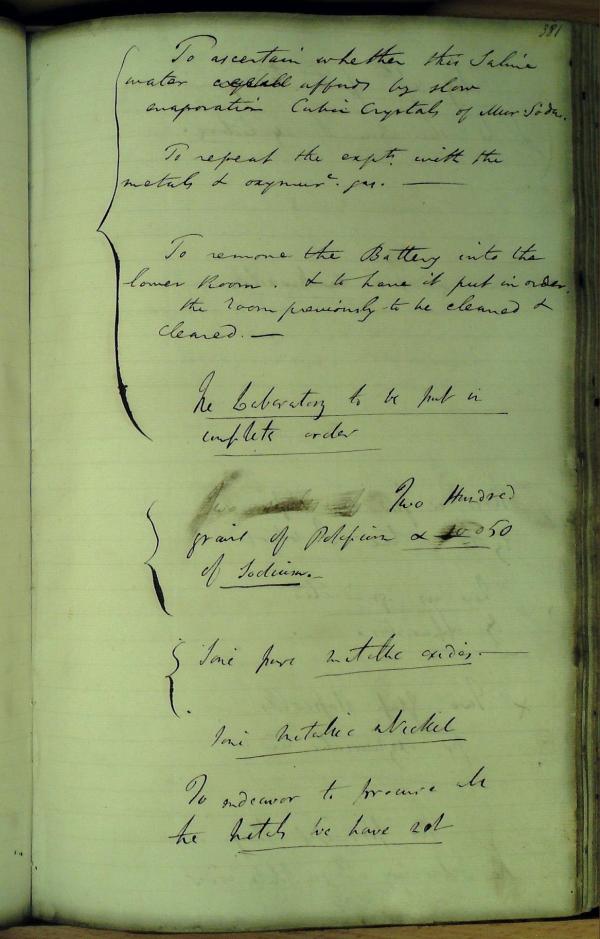 381
To ascertain whether this Saline
water affords by slow
evaporation Cubic Crystals of Mur: Soda.
To repeat the expts. with the
metals & oxymurc. gas. —
To remove the Battery into the
lower Room. & to have it put in order.
the room previously to be cleaned &
cleared. —
The Laboratory to be put in
complete order
Two Hundred
grains of Potassium & 50
of Sodium. —
Some pure metallic oxides. —
Some metallic Nickel
To endeavor to procure all
the metals we have not